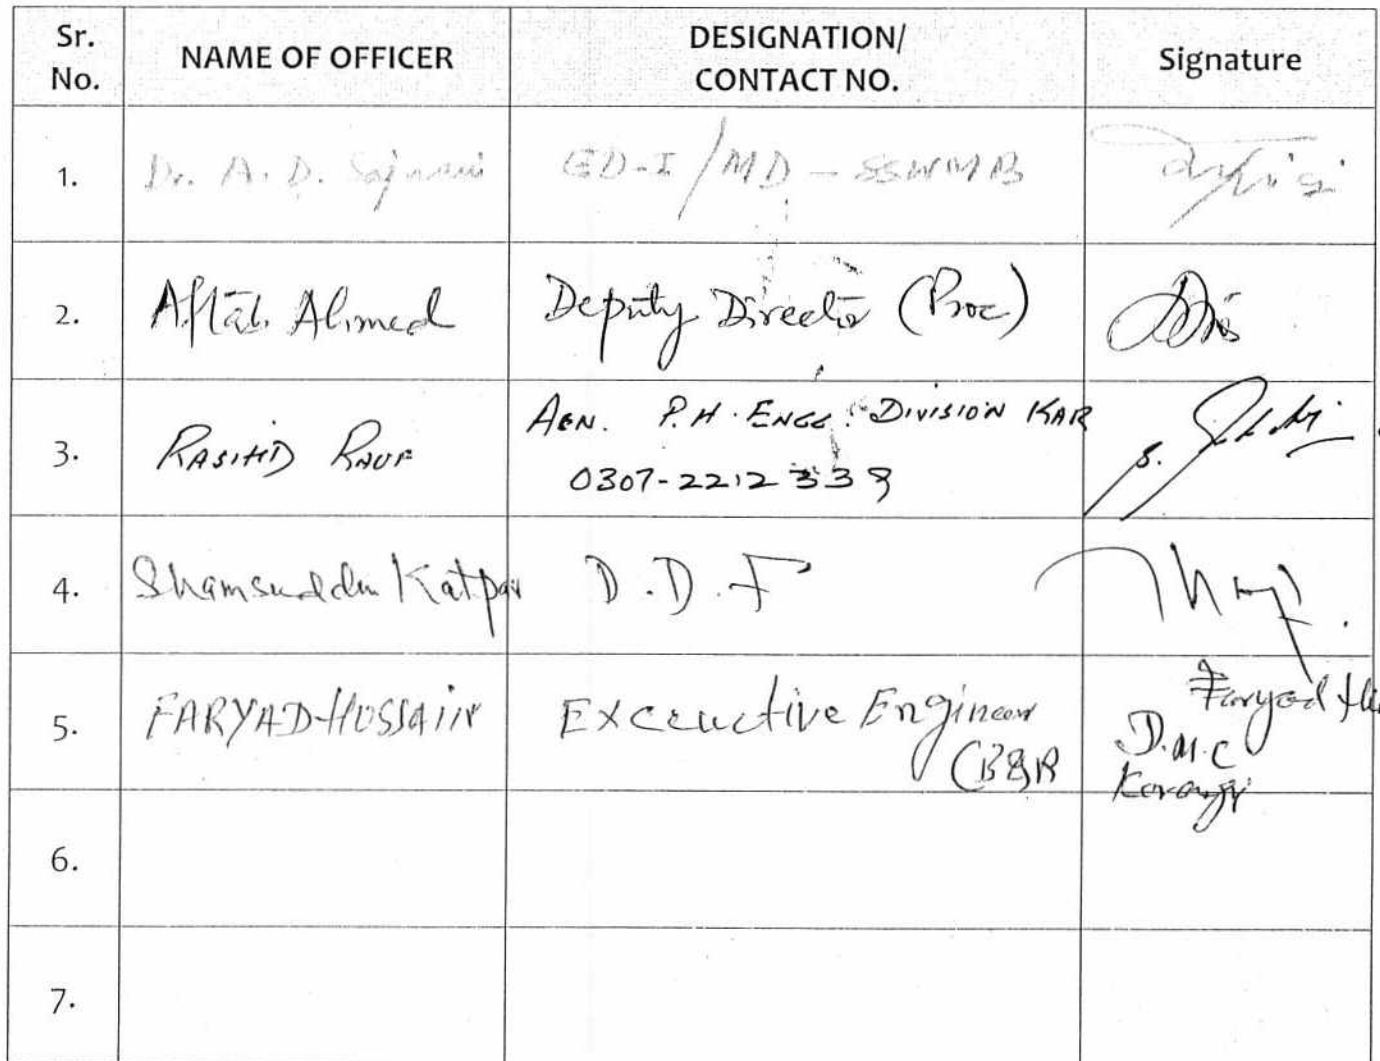 Sr. No. NAME OF OFFICER DESIGNATION/ CONTACT NO. Signature
1. Dr. A. D. Sajnani ED-I/MD-SSWMB
2. Aftab Ahmed Deputy Director (Proc)
3. RASHID RAUF AEN. P.H. ENGG. DIVISION KAR
0307-2212339
4. Shamsuddin Katpar D.D.F
5. FARYAD HUSSAIN Excecutive Engineer Faryad
(B&R D.M.C
Korangi
6.
7.